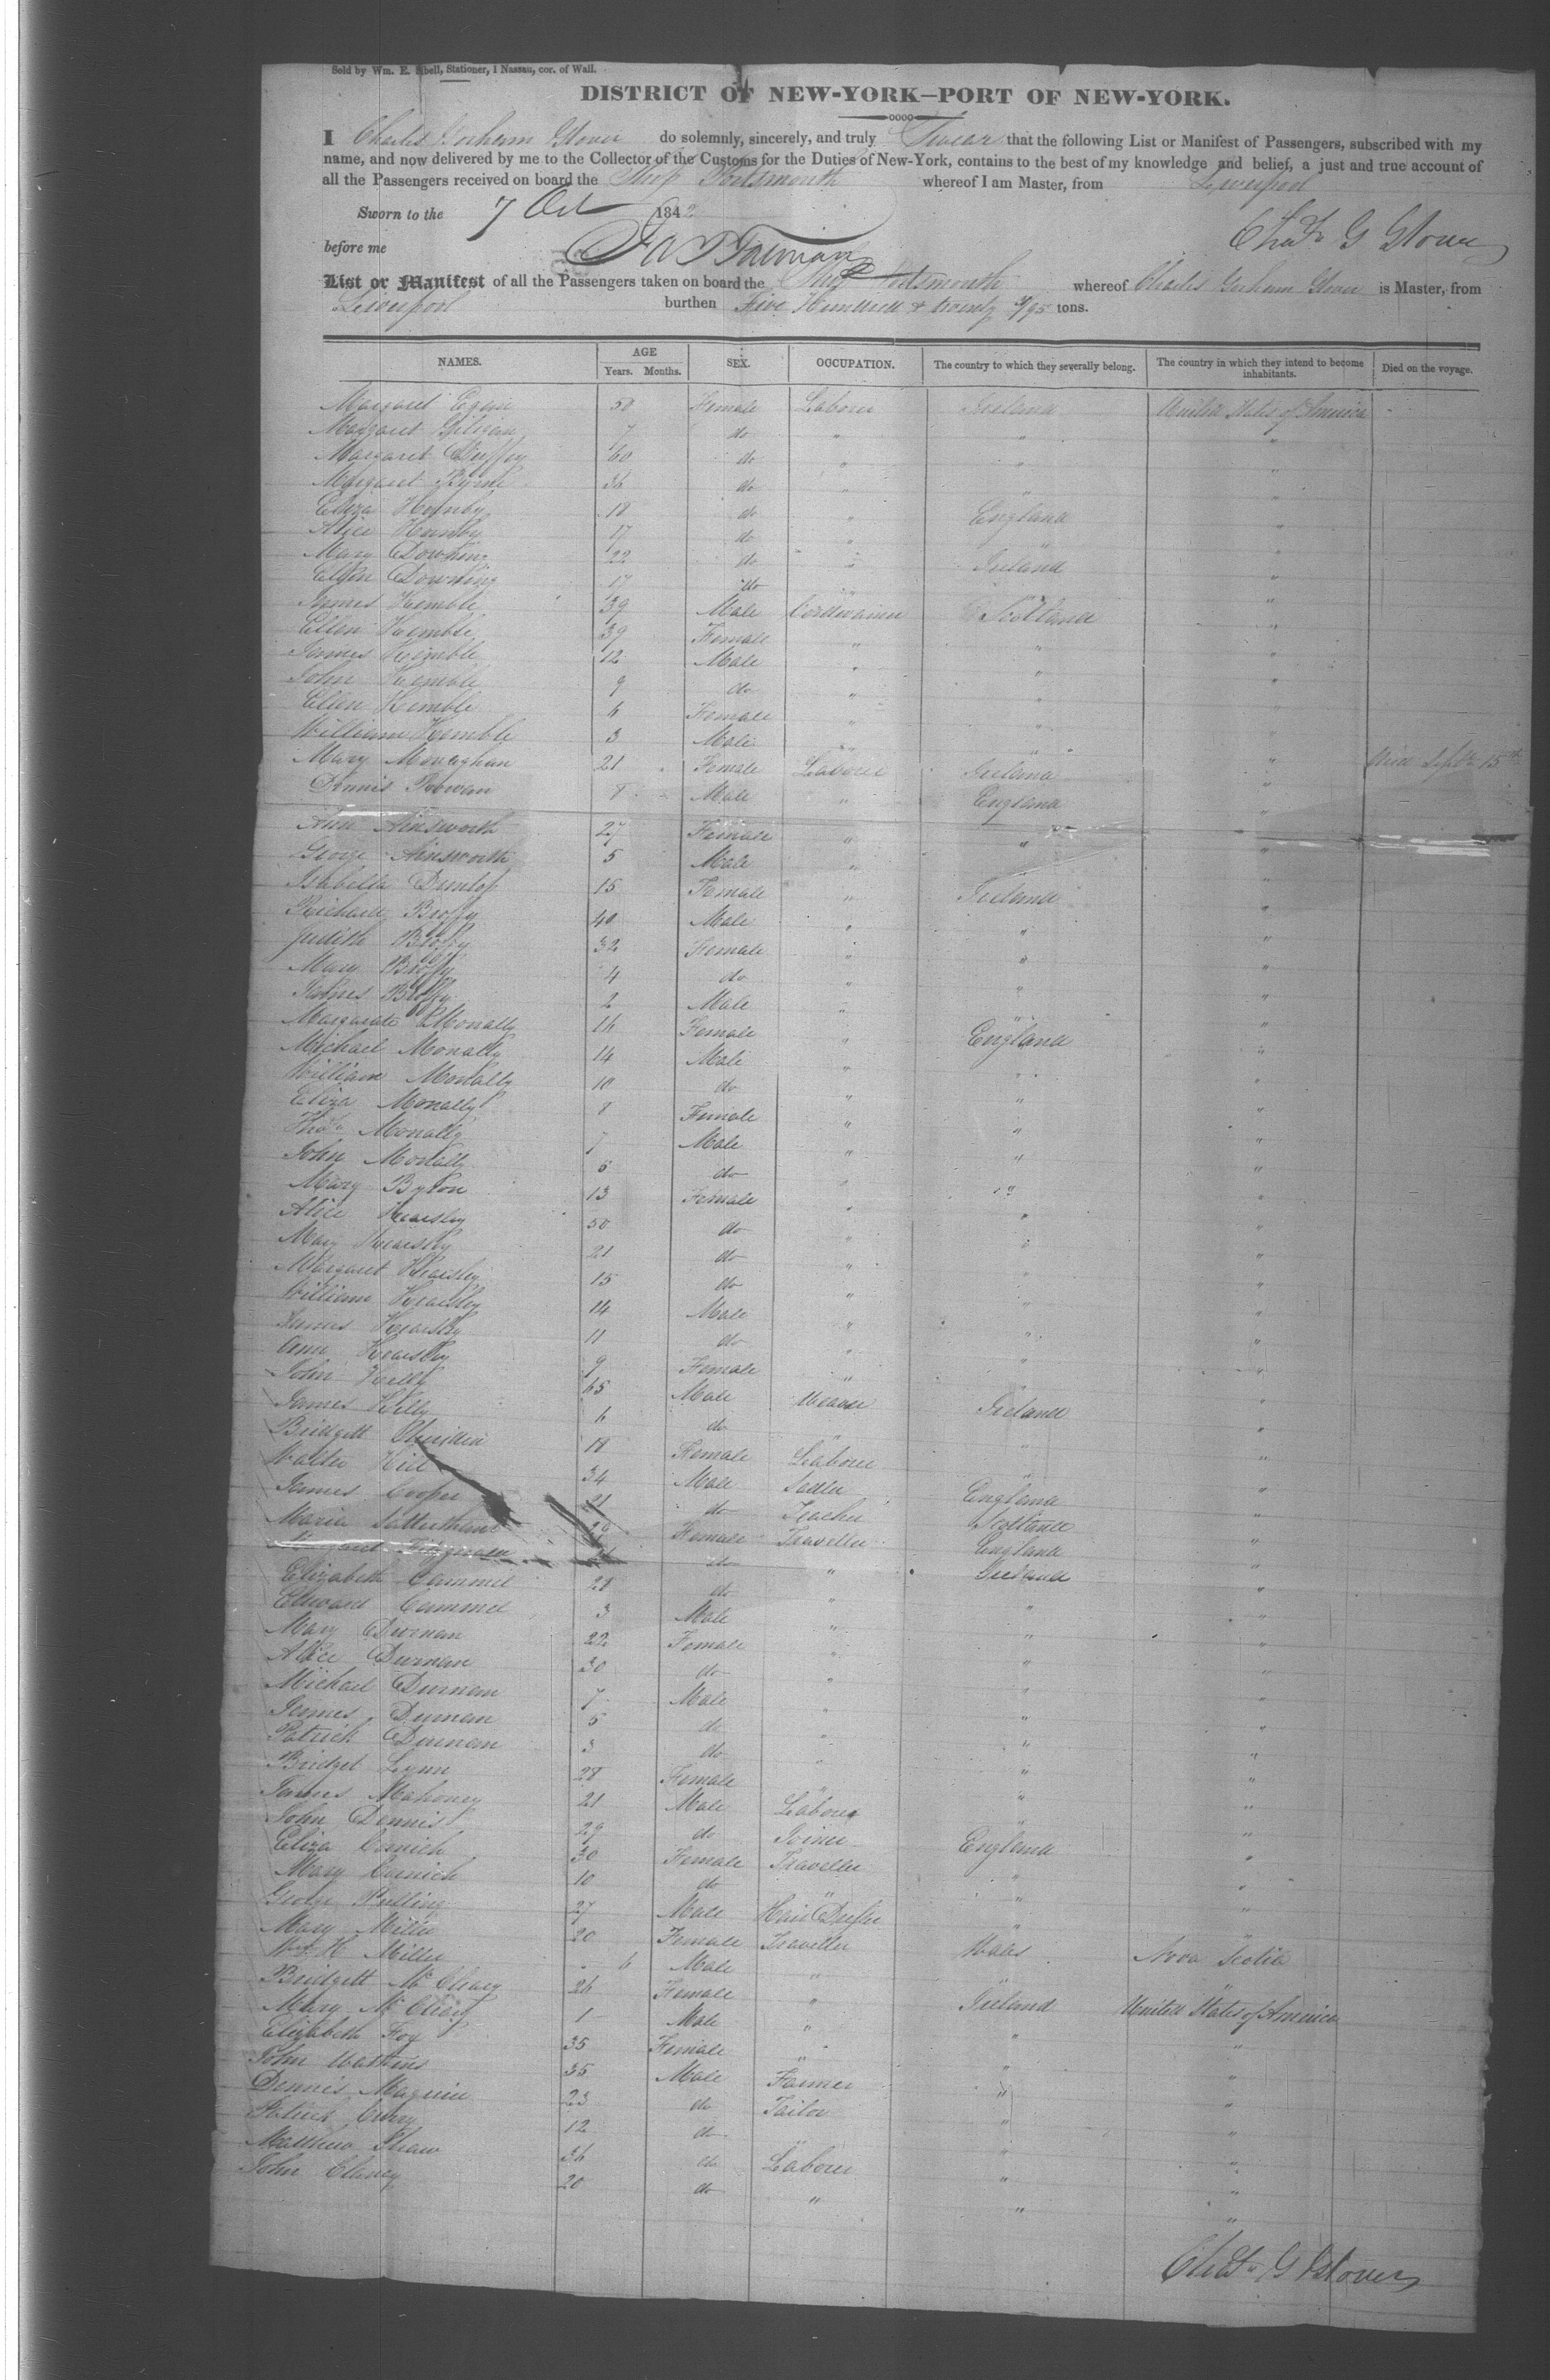 Sold by Wm. E. Sibell, Stationer, 1 Nassau, cor. of Wall.
DISTRICT OF NEW-YORK—PORT OF NEW-YORK.
I Charles Gorham Glover do solemnly, sincerely, and truly Swear that the following List or Manifest of Passengers, subscribed with my
name, and now delivered by me to the Collector of the Customs for the Duties of New-York, contains to the best of my knowledge and belief, a just and true account of
all the Passengers received on board the Ship Portsmouth whereof I am Master, from Liverpool
Sworn to the 7 Oct 1842
Chas G Glover
before me
List or Manifest of all the Passengers taken on board the Ship Portsmouth whereof Charles Gorham Glover is Master, from
Liverpool burthen Five Hundred & twenty 9/95 tons.
NAMES. AGE Years. Months. SEX. OCCUPATION. The country to which they severally belong. The country in which they intend to become inhabitants. Died on the voyage.
Margaret Egan 50 Female Labour Ireland United States of America
Margaret Giligan 7 do " " "
Margaret Duffey 60 do " " "
Margaret Byrne 36 do " " "
Eliza Hornby 18 do " England "
Alice Hornby 17 do " " "
Mary Downing 22 do " Ireland "
Ellen Downing 17 do " " "
James Kemble 39 Male Cordwainer Scotland "
Ellen Kemble 39 Female " " "
James Kemble 12 Male " " "
John Kemble 9 do " " "
Ellen Kemble 6 Female " " "
William Kemble 3 Male " " "
Mary Monaghan 21 Female Labour Ireland " Died Septr 15th
Dinnis 8 Male " England "
Ann Ainsworth 27 Female " " "
George Ainsworth 5 Male " " "
Isabella Dunlop 15 Female " Ireland "
Richard Broffy 40 Male " " "
Judith Broffy 32 Female " " "
Mary Broffy 4 do " " "
James Broffy 2 Male " " "
Margarate Monally 16 Female " England "
Michael Monally 14 Male " " "
William Monally 10 do " " "
Eliza Monally 8 Female " " "
Thos Monally 7 Male " " "
John Monally 6 do " " "
Mary Byron 13 Female " " "
Alice Kearsley 50 do " " "
Mary Kearsley 21 do " " "
Margaret Kearsley 15 do " " "
William Kearsley 14 Male " " "
James Kearsley 11 do " " "
Ann Kearsley 9 Female " " "
John Kelly 65 Male Weaver Ireland "
James Kelly 6 do " " "
Bridgett Sheriden 18 Female Labour " "
Walter Hill 34 Male Sadler England "
James Cooper 21 do Teacher Scotland "
Maria Female Traveller England "
do " Ireland "
Elizabeth Cammel 28 do " " "
Edward Cammel 3 Male " " "
Mary Durnan 22 Female " " "
Alice Durnan 30 do " " "
Michael Durnan 7 Male " " "
James Durnan 5 do " " "
Patrick Durnan 3 do " " "
Bridget Lynn 28 Female " " "
James Mahoney 21 Male Labour " "
John Dennis 29 do Joiner England "
Eliza Cornich 30 Female Traveller " "
Mary Cornich 10 do " " "
George 27 Male Hair Dresser " "
Mary Miller 20 Female Traveller Wales Nova Scotia
Wm H Miller 6 Male " " "
Bridgett McCleary 26 Female " Ireland United States of America
Mary McCleary 1 Male " " "
Elizabeth Foy 35 Female " " "
John Watkins 35 Male Farmer " "
Dennis Maguire 23 do Tailor " "
Patrick 12 do " " "
Matthew Shaw 36 do Labour " "
John Clancy 20 do " " "
Chas G Glover